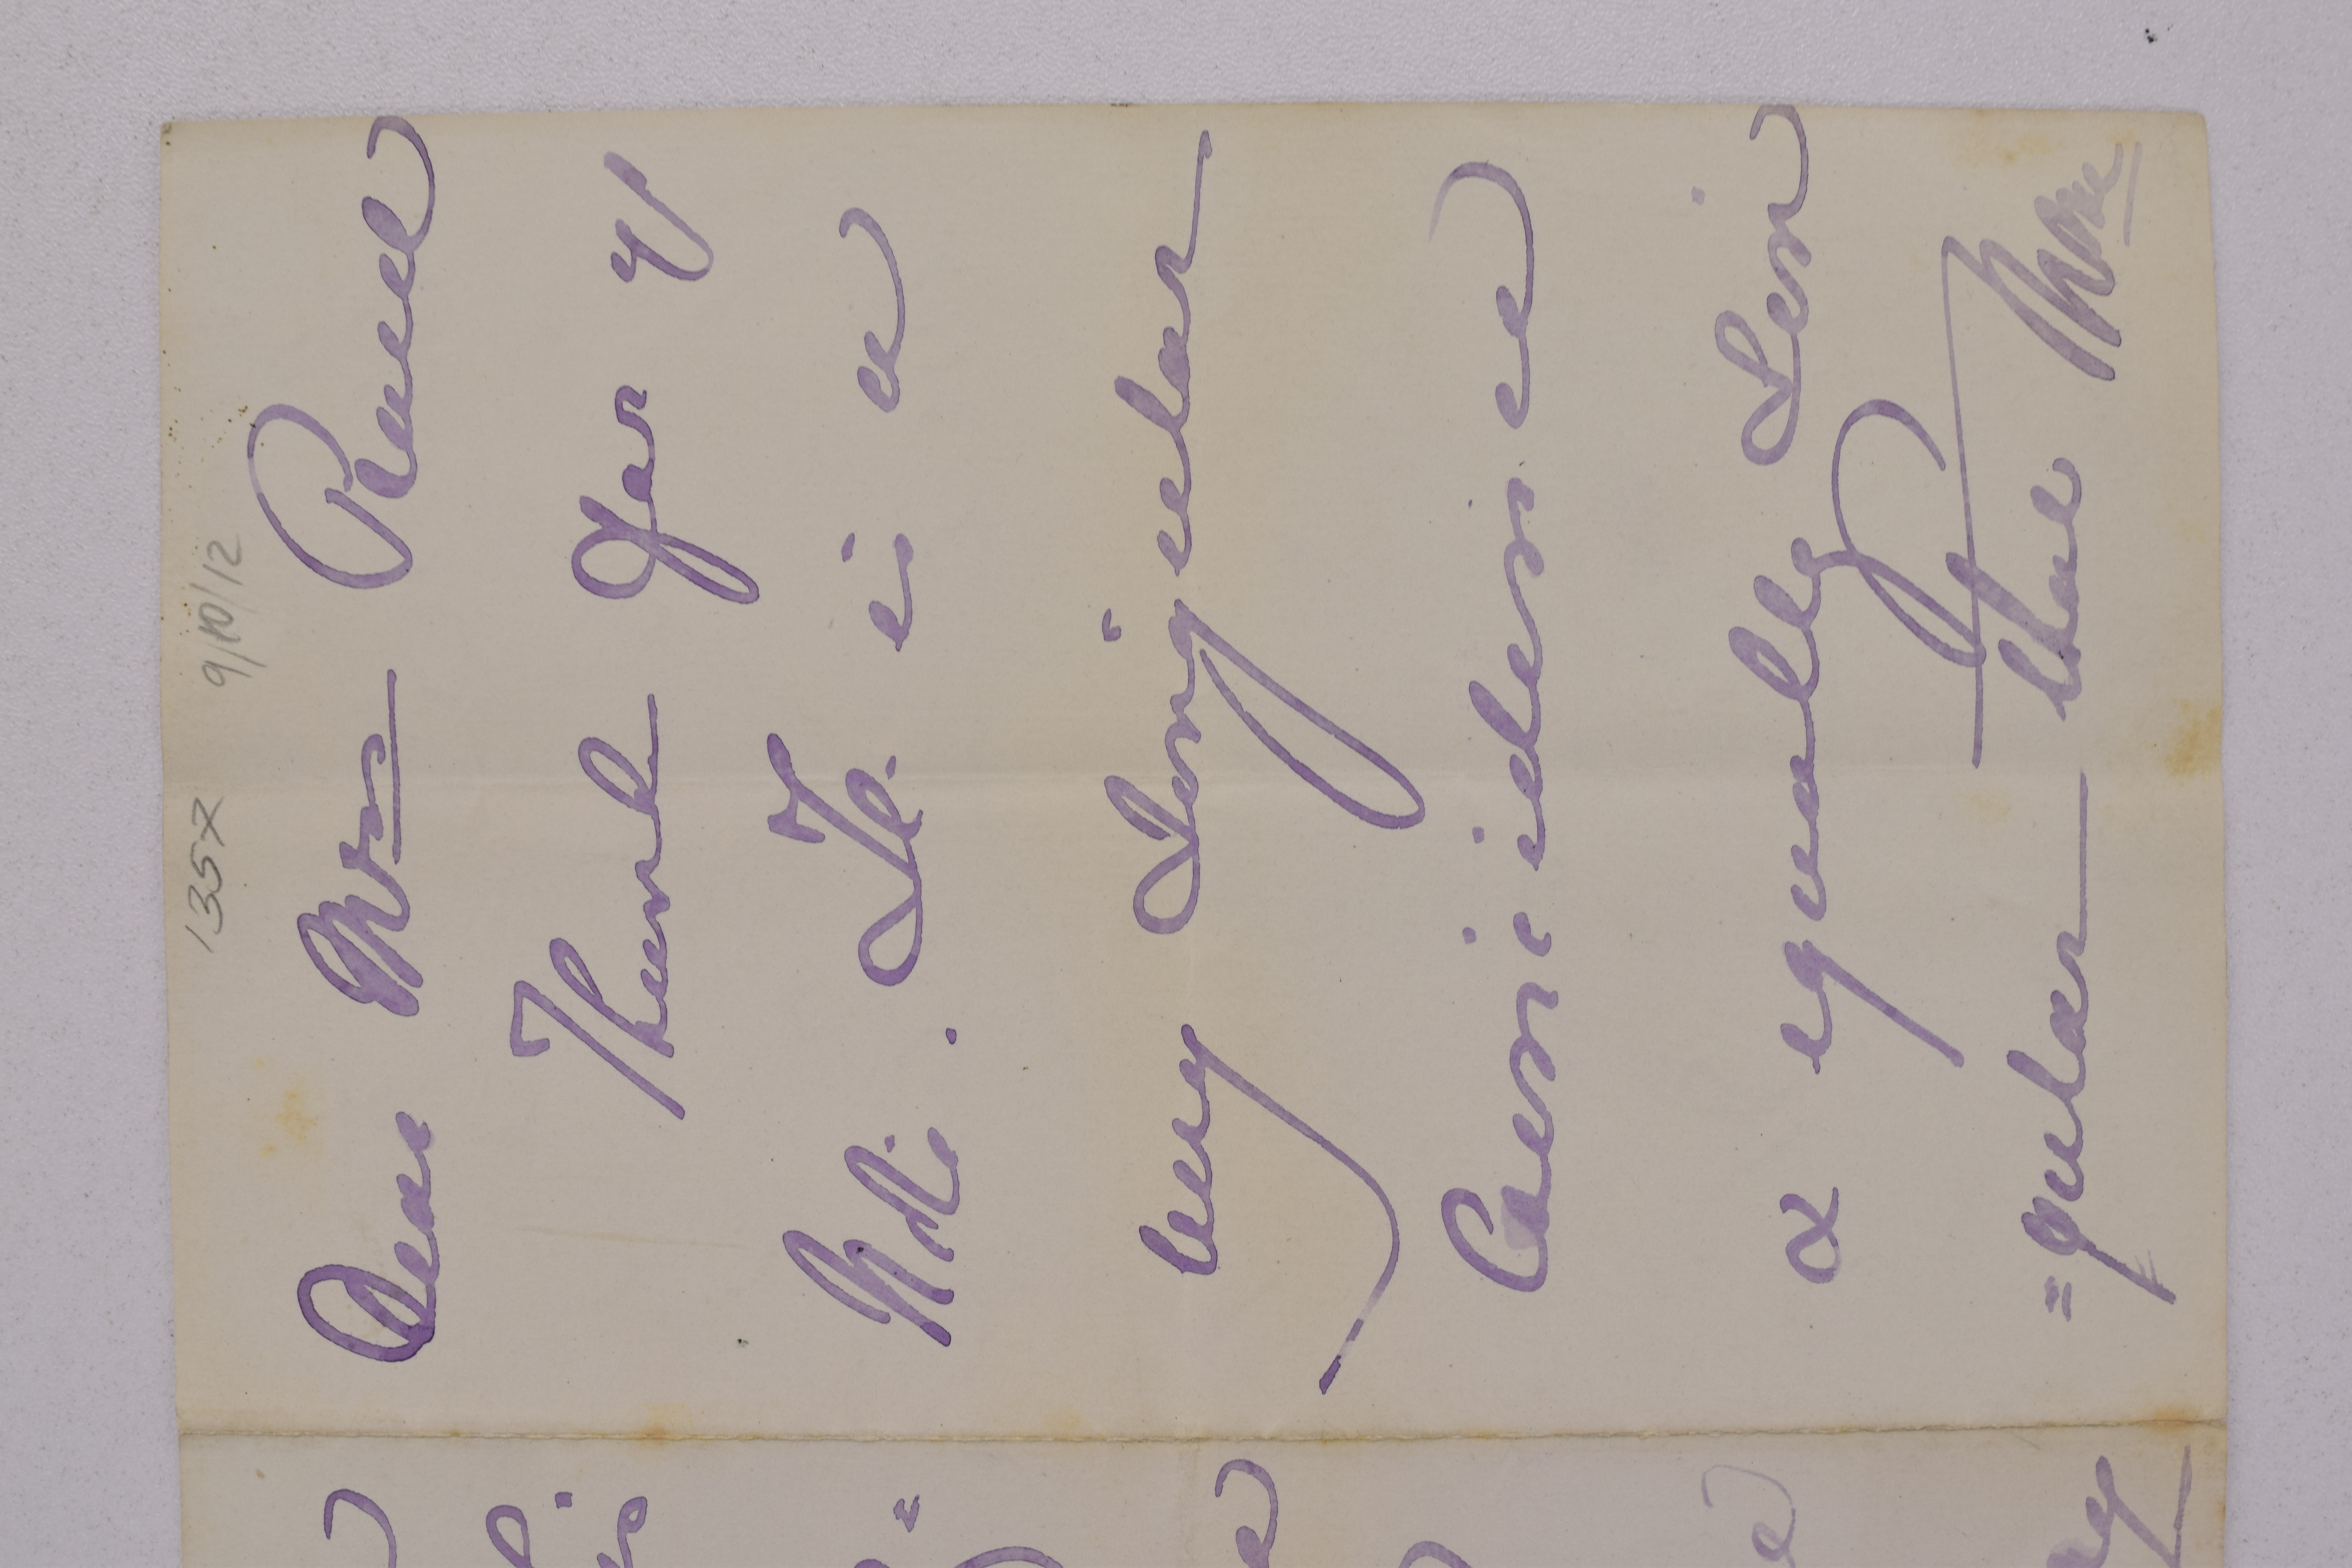 135X 9/10/12
Dear Mrs
Thanks for yr
Note. It is a
very singular
Coincidence
& equally Sin
=gular that Mme